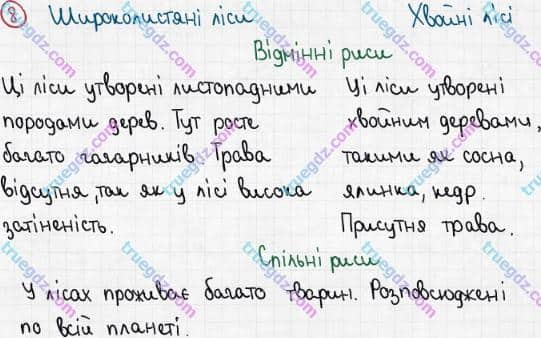 8 Широколистяні ліси Хвойні лісі
Відмінні риси
Ці ліси утворені листопадними
породами дерев. Тут росте
багато чагарників. Трава
відсутня, так як у лісі висока
затіненість.
Ці ліси утворені
хвойним деревами,
такими як сосна,
ялинка, кедр.
Присутня трава.
Спільні риси
У лісах проживає багато тварин. Розповсюджені
по всій планеті.
truegdz.com